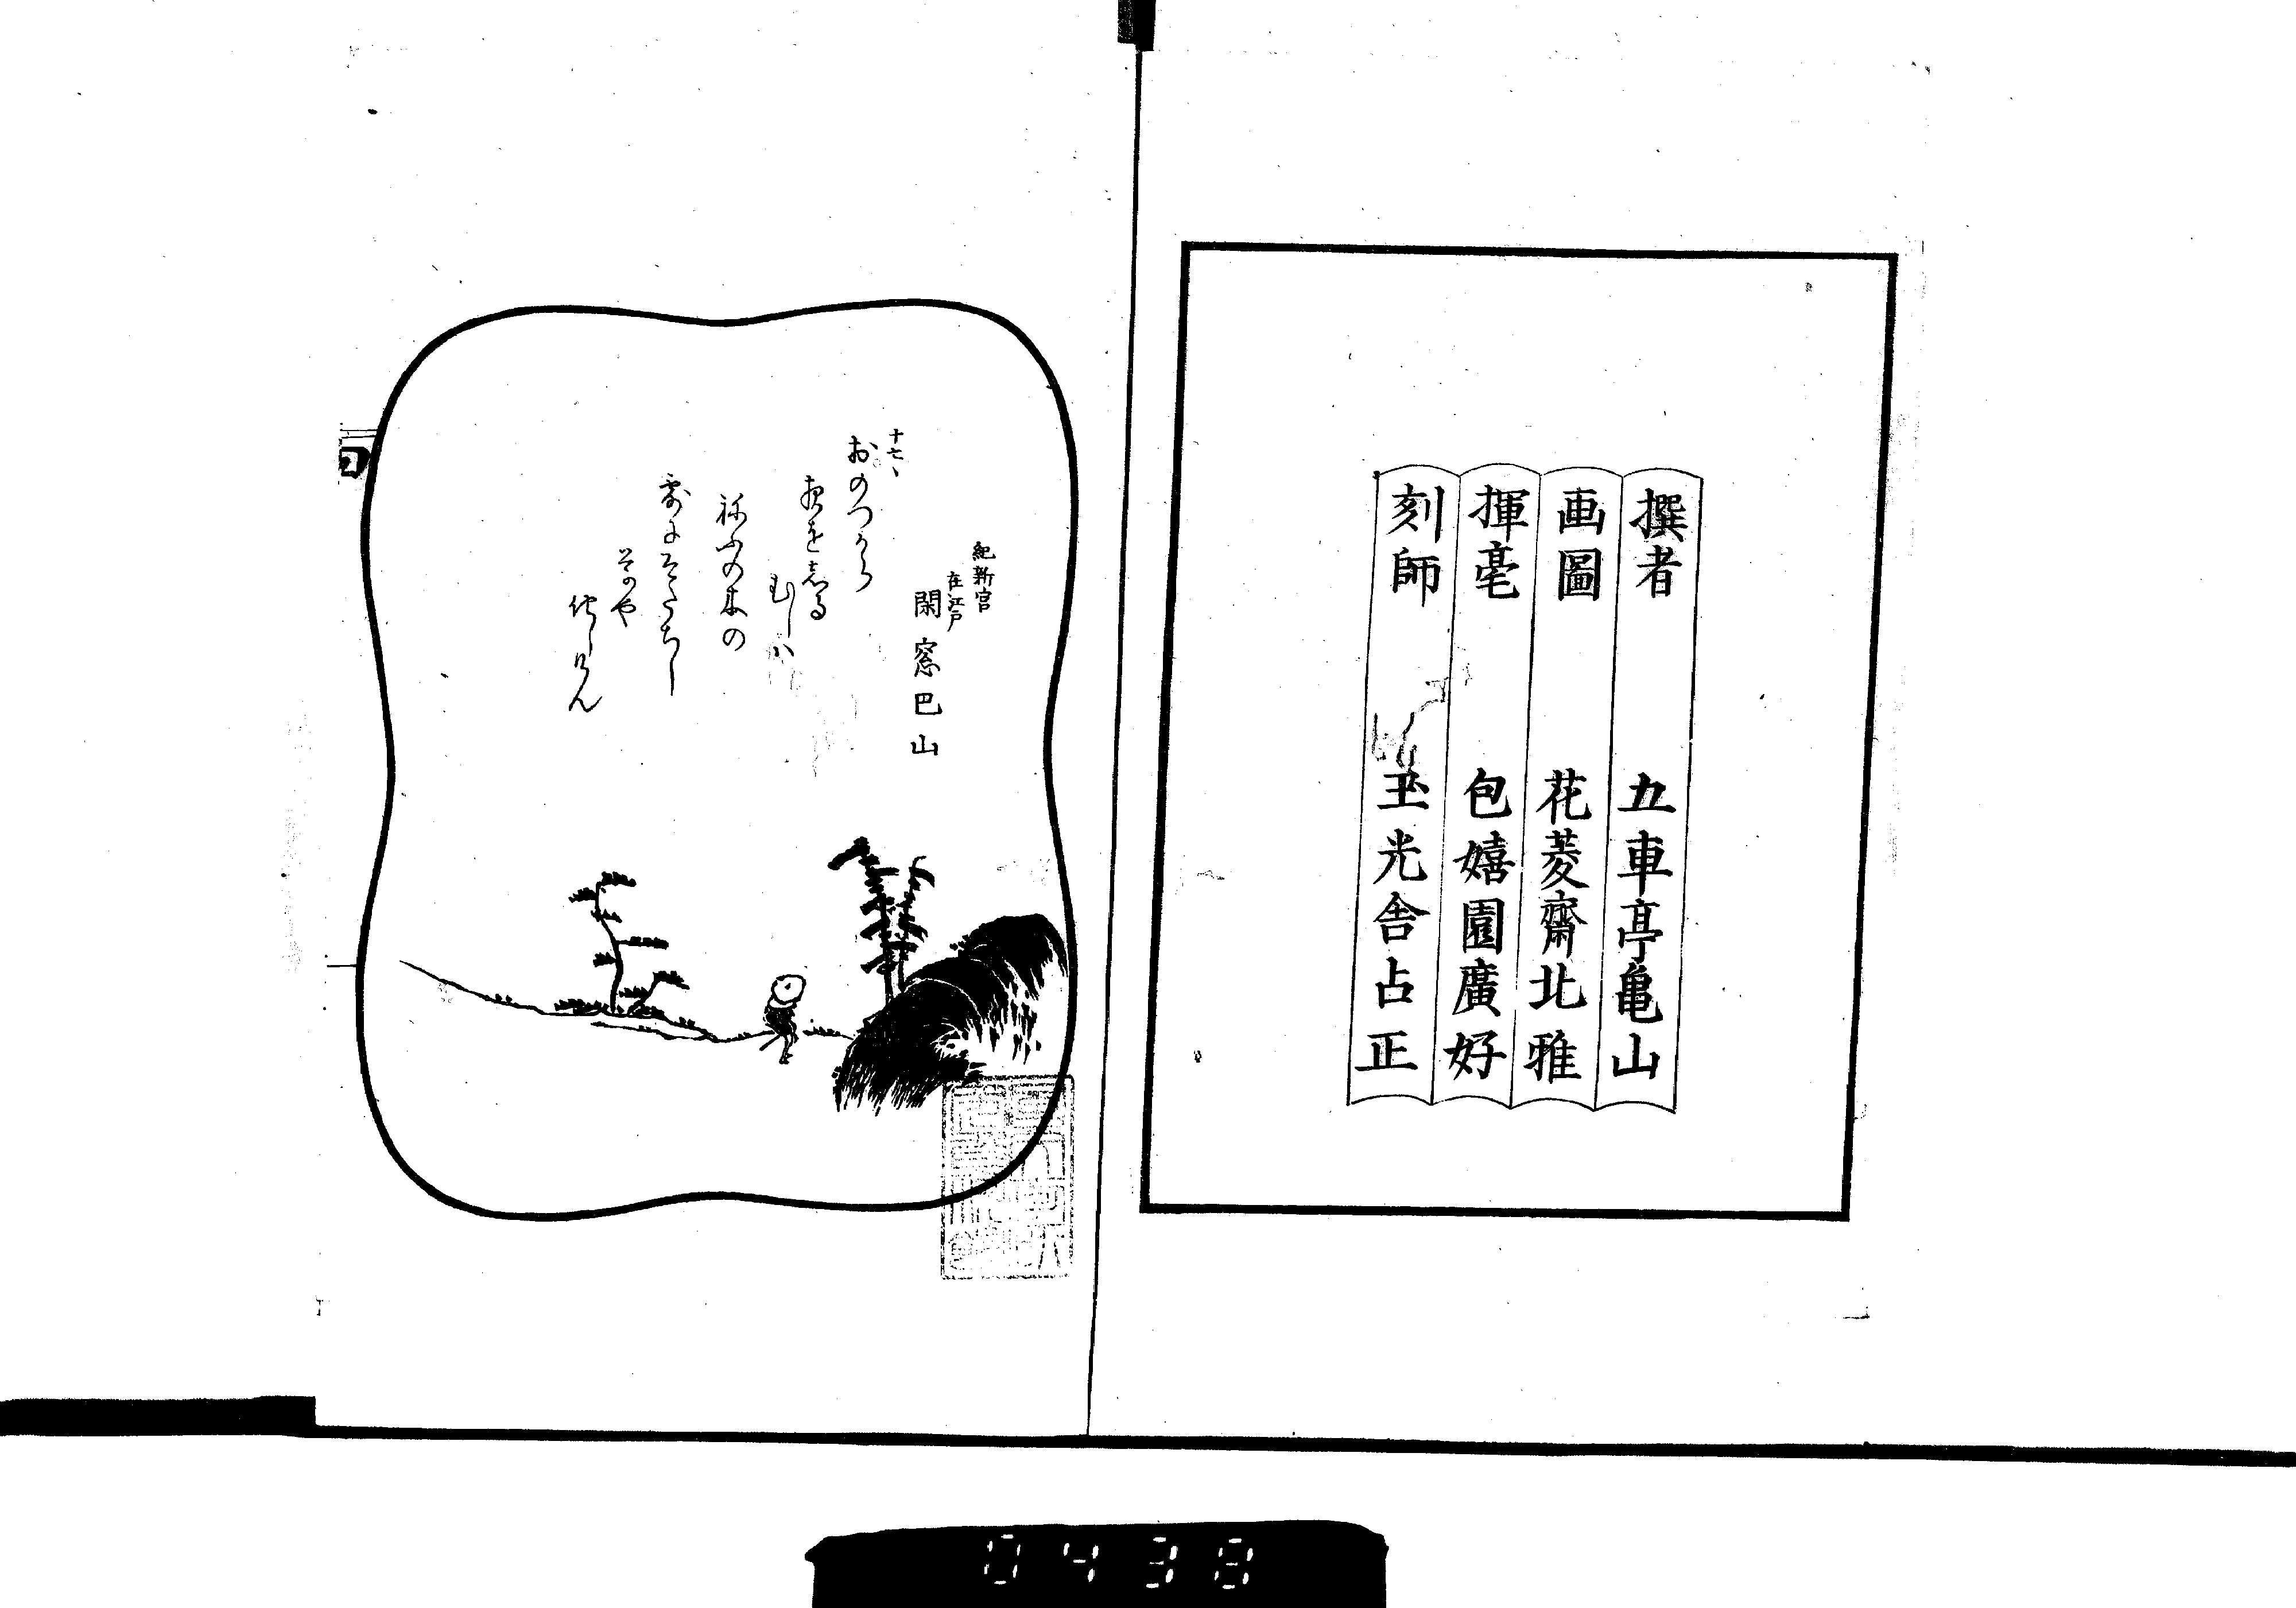 撰者 五車亭亀山
画圖 花菱齋北雅
揮毫 包嬉園廣好
刻師 玉光舎占正
紀新宮
在江戸
閑窓巴山
十七、
おのつから
夜を志る
むしハ
ねふの木の
そのや
0438